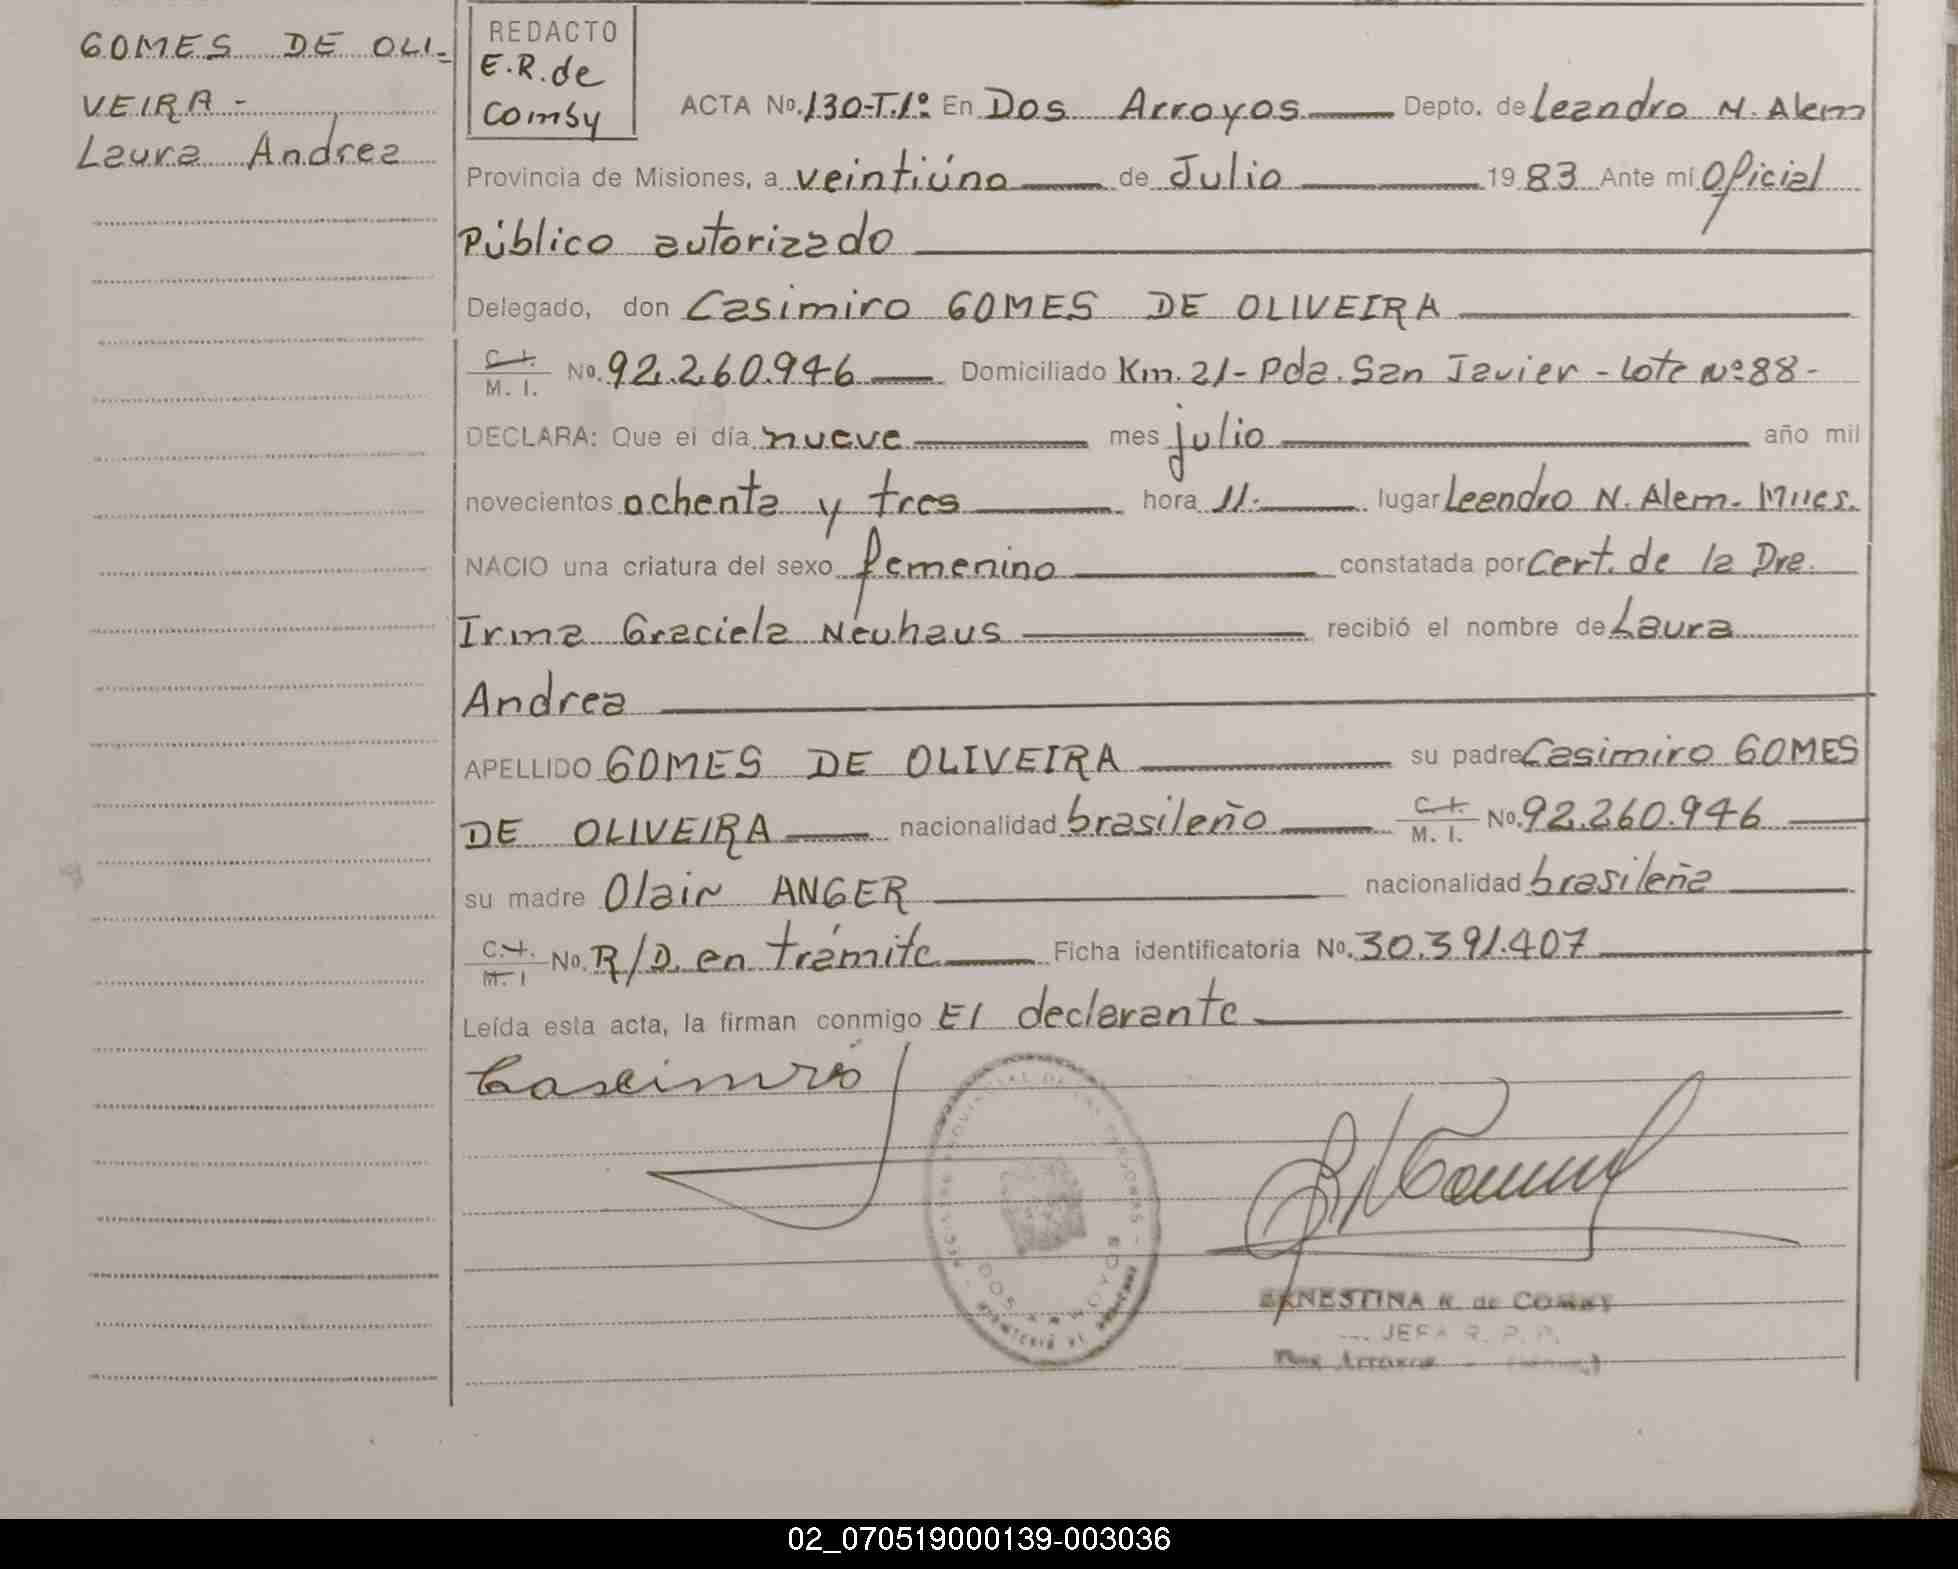 GOMES DE OLI-
VEIRA -
Laura Andrea
REDACTO
E.R. de
Comby
ACTA No. 130-T.1º. En Dos Arroyos Depto. de Leandro N. Alem
Provincia de Misiones, a veintiúno de Julio 1983 Ante mí Oficial
Público autorizado
Delegado, don Casimiro GOMES DE OLIVEIRA
C. I. / M. I. No. 92.260.946 Domiciliado Km. 21 - Pda. San Javier - Lote Nº 88 -
DECLARA: Que el día nueve mes julio año mil
novecientos ochenta y tres hora 11.- lugar Leandro N. Alem - Mnes.
NACIO una criatura del sexo femenino constatada por Cert. de la Dra.
Irma Graciela Neuhaus recibió el nombre de Laura
Andrea
APELLIDO GOMES DE OLIVEIRA su padre Casimiro GOMES
DE OLIVEIRA nacionalidad brasileño C. I. / M. I. No. 92.260.946
su madre Olair ANGER nacionalidad brasileña
C. I. / M. I No. R/D. en trámite Ficha identificatoria No. 30.391.407
Leída esta acta, la firman conmigo El declarante
Casimiro
DOS ARROYOS
ERNESTINA R. de COMBY
JEFA R. P. P.
Dos Arroyos
02_070519000139-003036